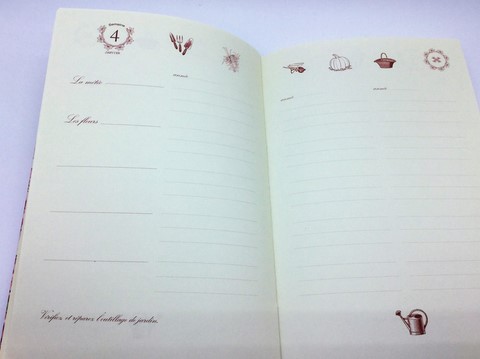 Semaine
4
JANVIER
La météo
Les fleurs
Vérifiez et réparez l'outillage de jardin.